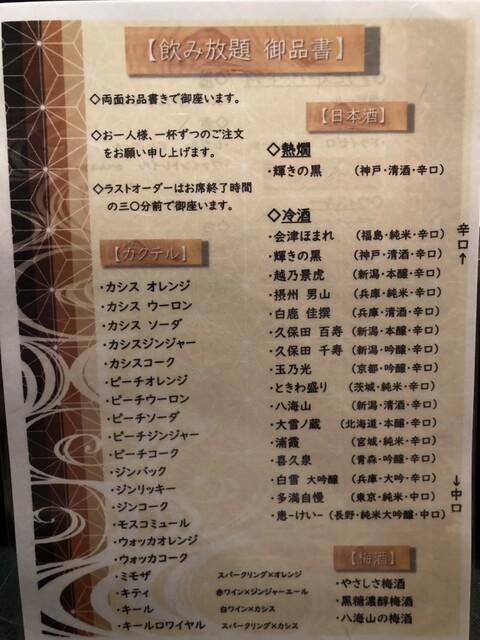 【飲み放題 御品書】
◇両面お品書きで御座います。
◇お一人様、一杯ずつのご注文
をお願い申し上げます。
◇ラストオーダーはお席終了時間
の三〇分前で御座います。
【カクテル】
・カシス オレンジ
・カシス ウーロン
・カシス ソーダ
・カシスジンジャー
・カシスコーク
・ピーチオレンジ
・ピーチウーロン
・ピーチソーダ
・ピーチジンジャー
・ピーチコーク
・ジンバック
・ジンリッキー
・ジンコーク
・モスコミュール
・ウォッカオレンジ
・ウォッカコーク
・ミモザ スパークリング×オレンジ
・キティ 赤ワイン×ジンジャーエール
・キール 白ワイン×カシス
・キールロワイヤル スパークリング×カシス
【日本酒】
◇熱燗
・輝きの黒 (神戸・清酒・辛口)
◇冷酒
・会津ほまれ (福島・純米・辛口)
・輝きの黒 (神戸・清酒・辛口)
・越乃景虎 (新潟・本醸・辛口)
・摂州 男山 (兵庫・純米・辛口)
・白鹿 佳撰 (兵庫・清酒・辛口)
・久保田 百寿 (新潟・本醸・辛口)
・久保田 千寿 (新潟・吟醸・辛口)
・玉乃光 (京都・吟醸・辛口)
・ときわ盛り (茨城・純米・辛口)
・八海山 (新潟・清酒・辛口)
・大雪ノ蔵 (北海道・本醸・辛口)
・浦霞 (宮城・純米・辛口)
・喜久泉 (青森・吟醸・辛口)
・白雪 大吟醸 (兵庫・大吟・辛口)
・多満自慢 (東京・純米・中口)
・恵-けい- (長野・純米大吟醸・中口)
辛口↑
↓中口
【梅酒】
・やさしさ梅酒
・黒糖濃醇梅酒
・八海山の梅酒